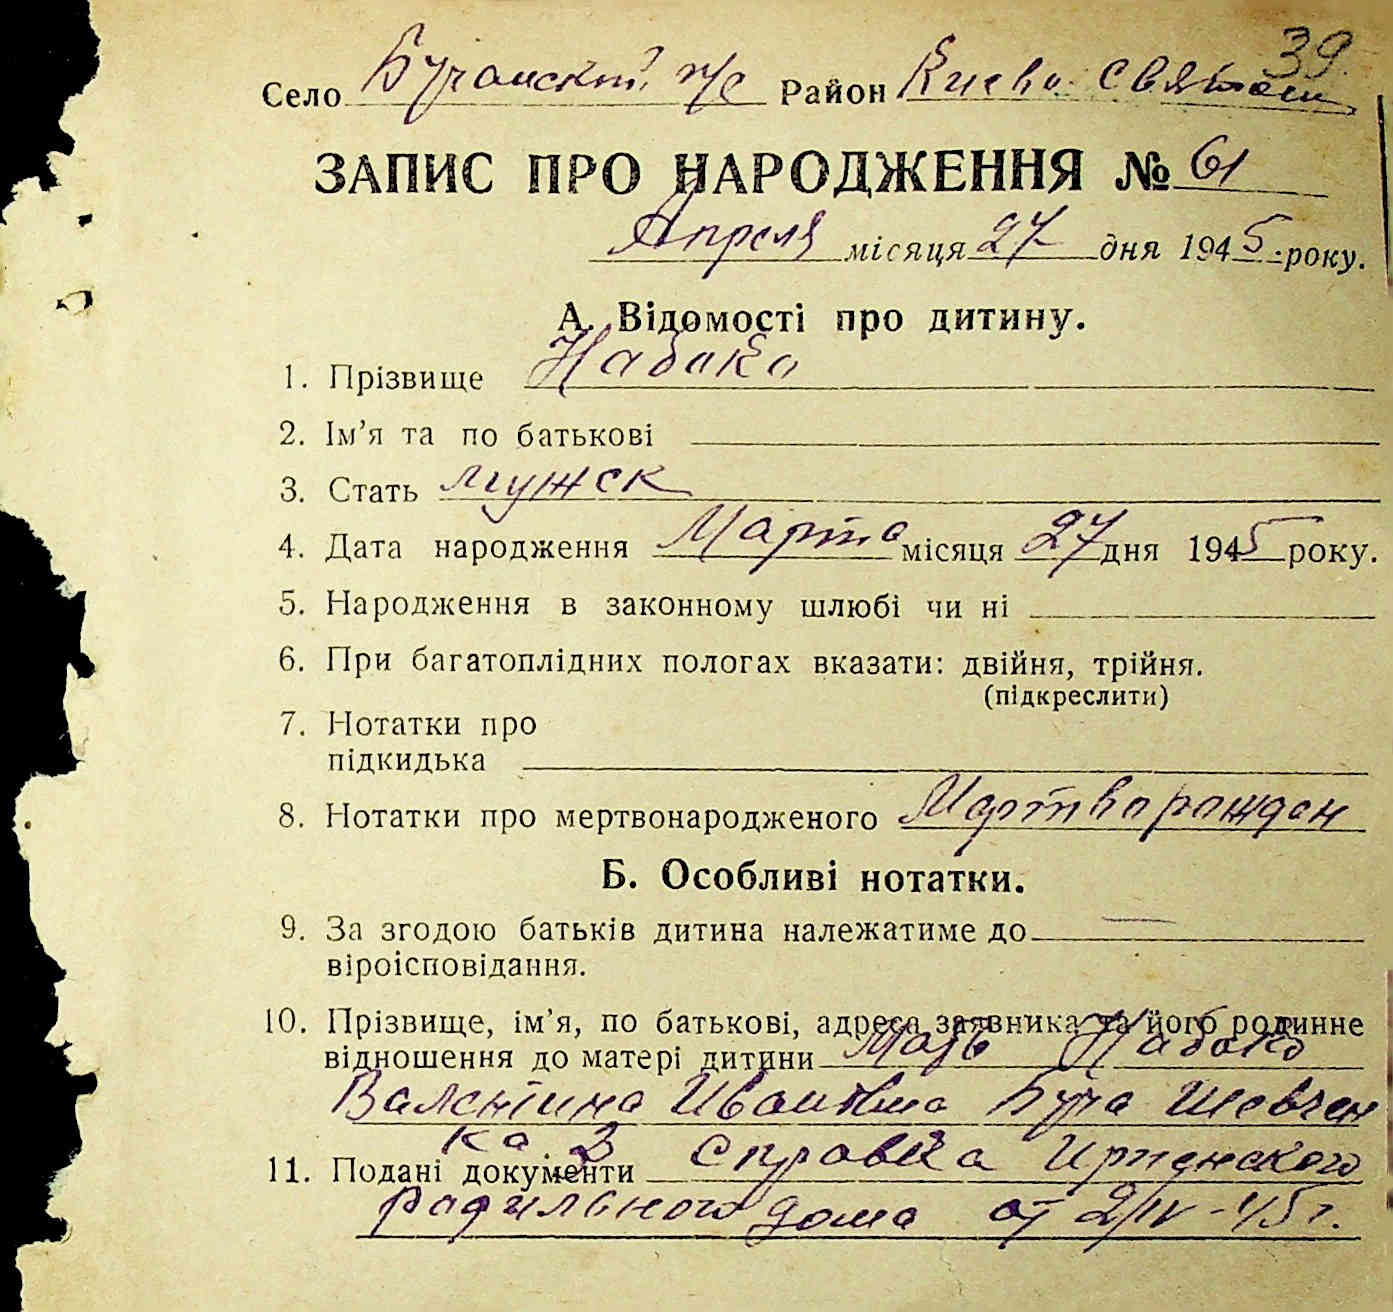 39.
Село Бучанский п/с Район Киево-Святош
ЗАПИС ПРО НАРОДЖЕННЯ № 61
Апреля місяця 27 дня 1945 року.
А. Відомості про дитину.
1. Прізвище Набока
2. Ім’я та по батькові
3. Стать мужск
4. Дата народження Марта місяця 27 дня 1945 року.
5. Народження в законному шлюбі чи ні
6. При багатоплідних пологах вказати: двійня, трійня.
(підкреслити)
7. Нотатки про
підкидька
8. Нотатки про мертвонародженого Мертворожден
Б. Особливі нотатки.
9. За згодою батьків дитина належатиме до —
віроісповідання.
10. Прізвище, ім’я, по батькові, адреса заявника та його родинне
відношення до матері дитини Мать Набока
Валентина Ивановна Буча Шевчен
ка 3
11. Подані документи Справка Ирпенского
родильного дома от 2/IV-45 г.